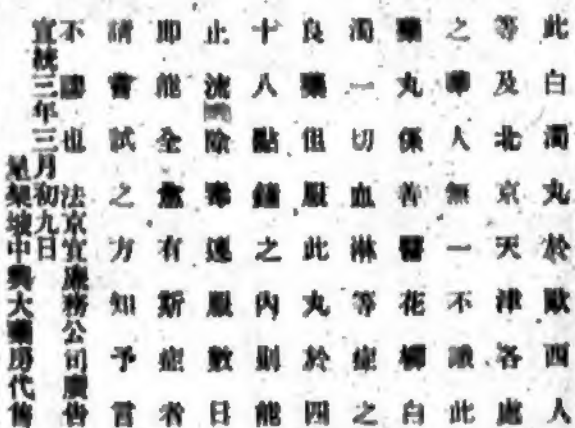 此白濁丸於歐西人
等及北京天津各處
之華人無一不識此
藥丸係善醫花柳白
濁一切血淋等症之
良藥但服此丸於四
十八點鐘之內則能
止流除毒速服數日
即能全愈有斯症者
請嘗試之方知予言
不謬也 法京宜廉務公司廣告
宣統三年三月初九日
星架坡中興大藥房代售